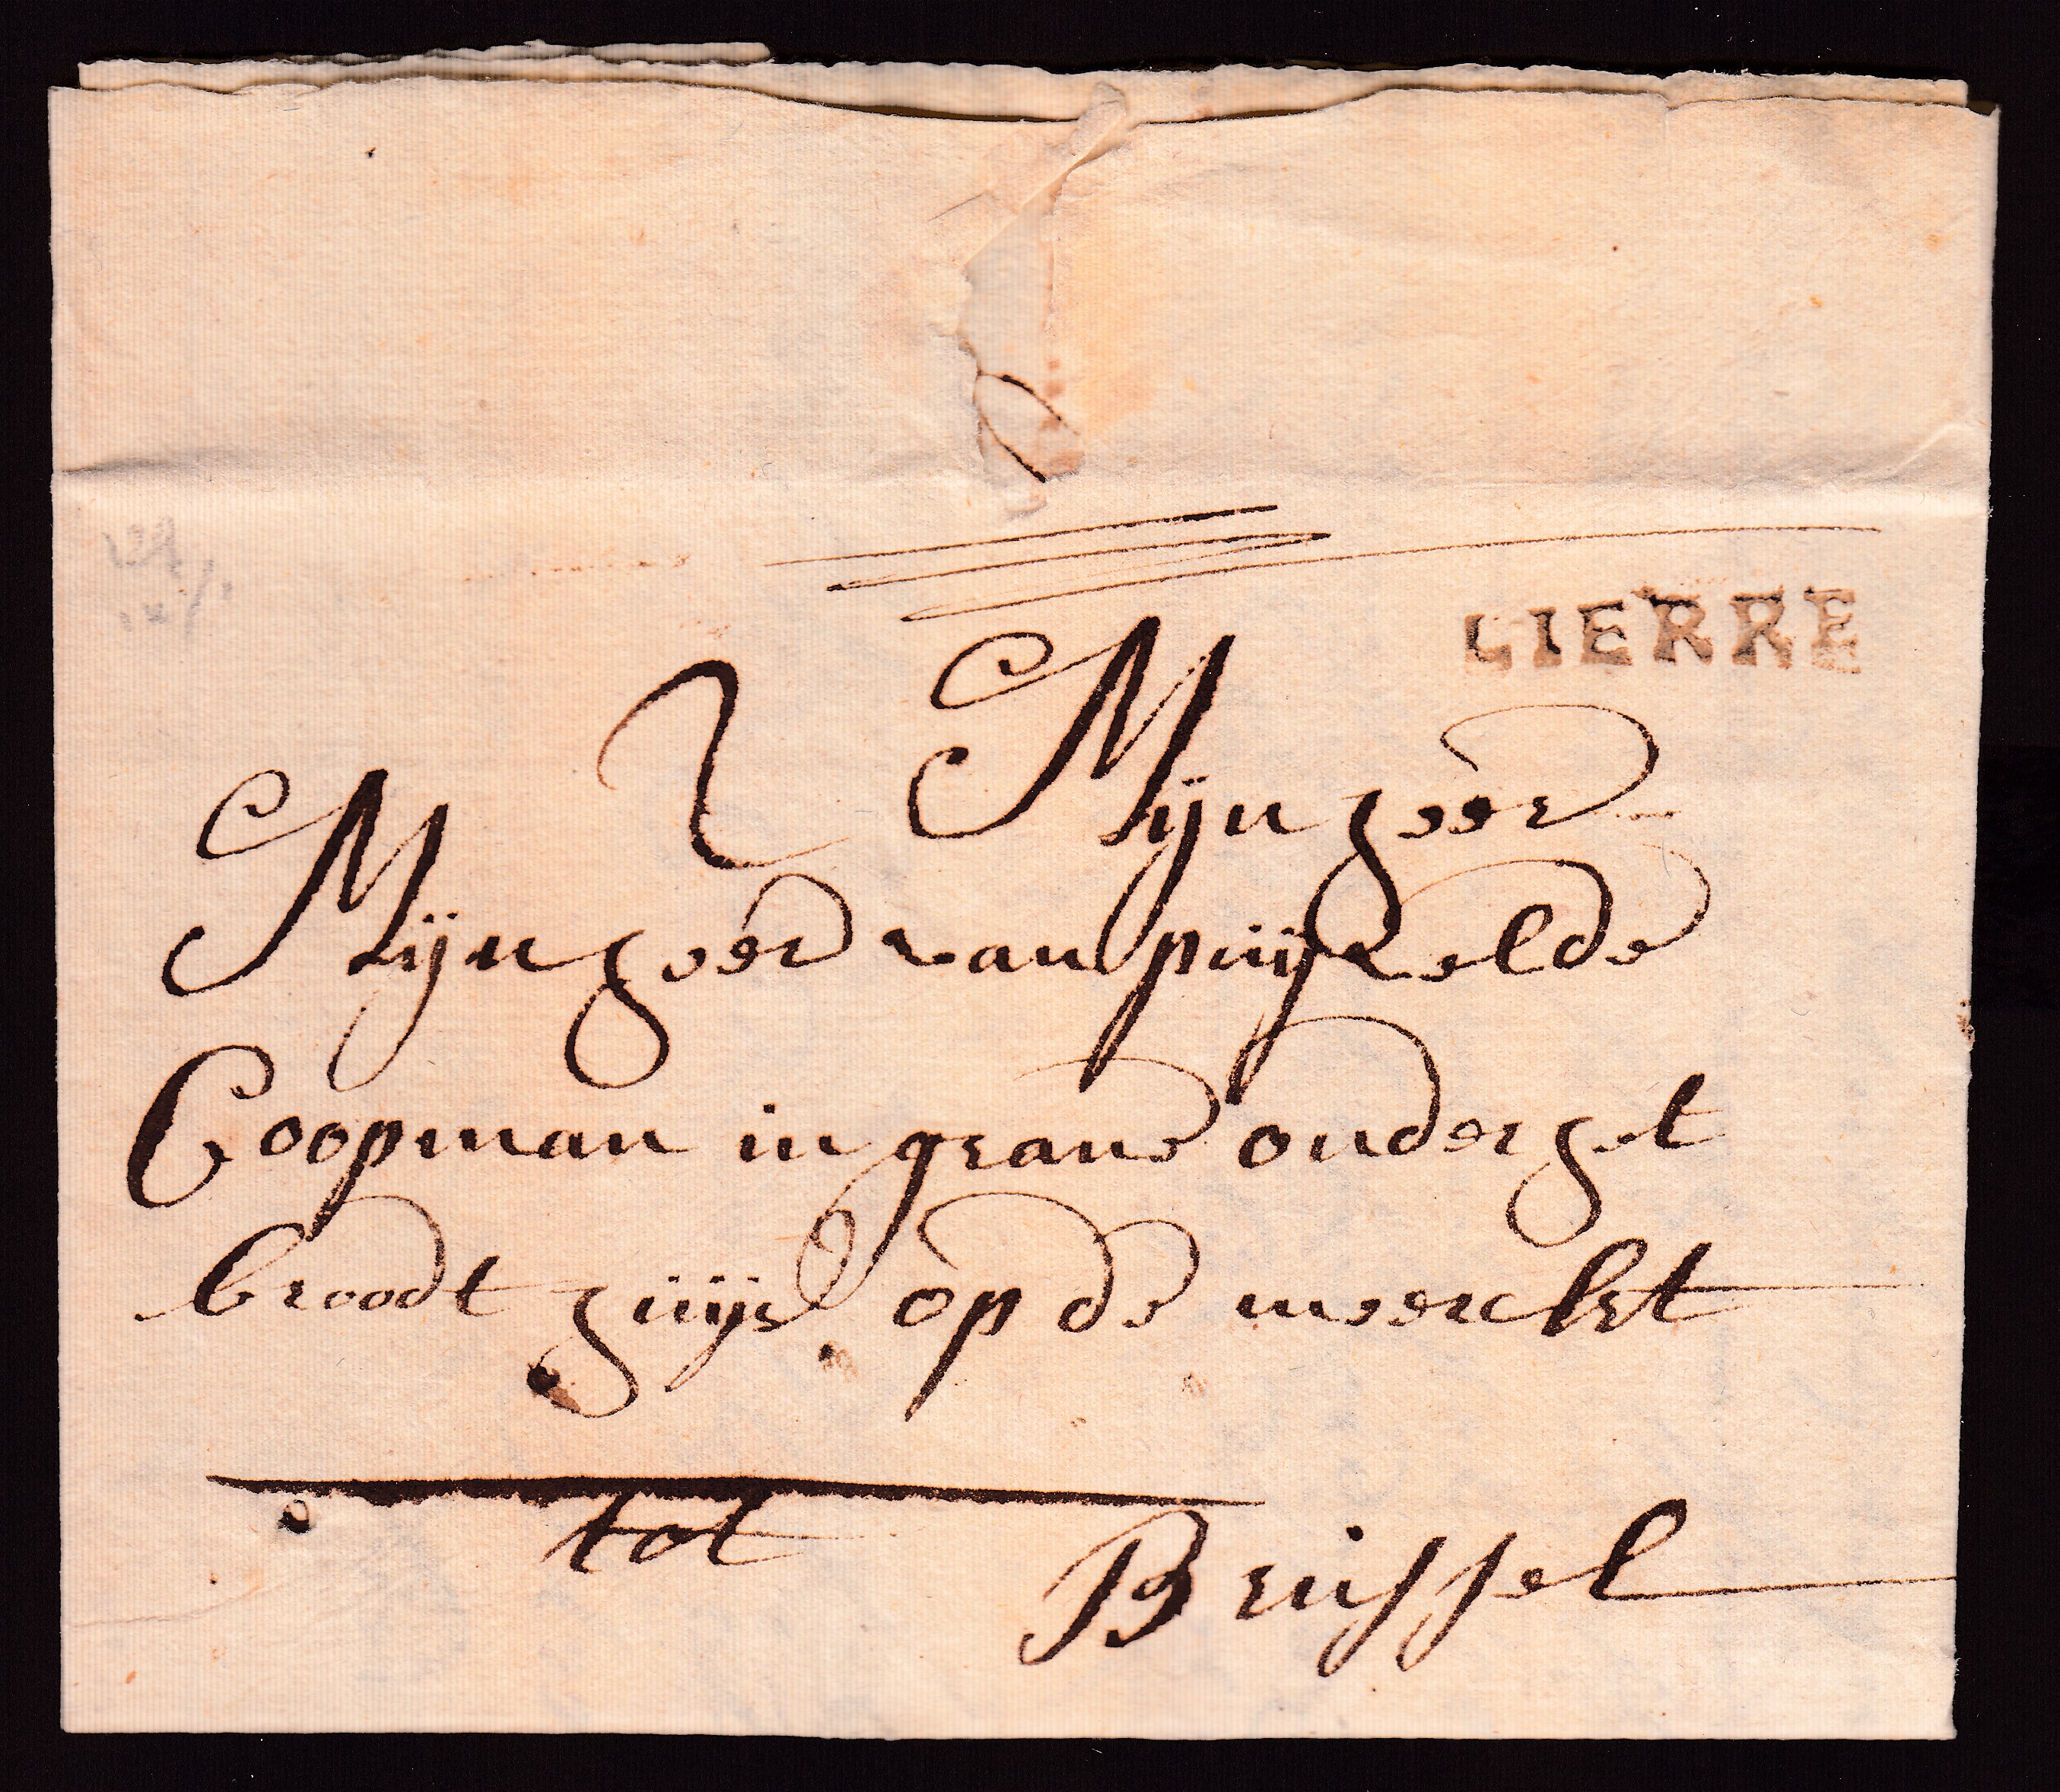 LIERRE
2 Mijn heer
Mijn heer van puijvelde
Coopman in grane onder het
broodt huijs op de meerckt
tot
Brussel